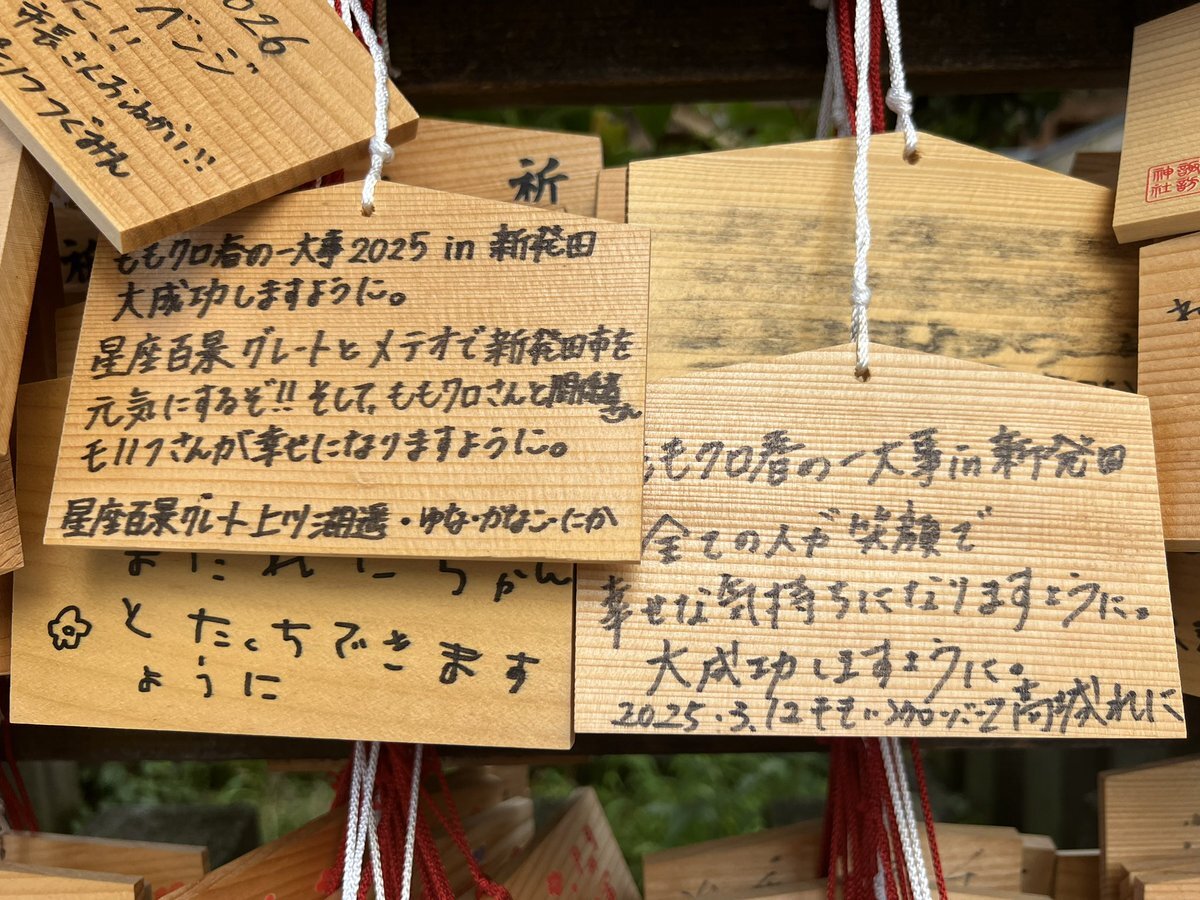 2026
ベンジ
た!!
市長さんおねがい!!
もノフぐみん
祈
諏訪
神社
ももクロ春の一大事2025 in 新発田
大成功しますように。
星座百景グレートとメテオで新発田市を
元気にするぞ!! そして、ももクロさんと関係者さん
モノノフさんが幸せになりますように。
星座百景グレート上ツ湖遥・ゆな・かなこ・にか
またれにちゃん
とたくちできます
ように
ももクロ春の一大事in新発田
全ての人が笑顔で
幸せな気持ちになりますように。
大成功しますように。
2025.3.12 ももいろクローバーZ 高城れに